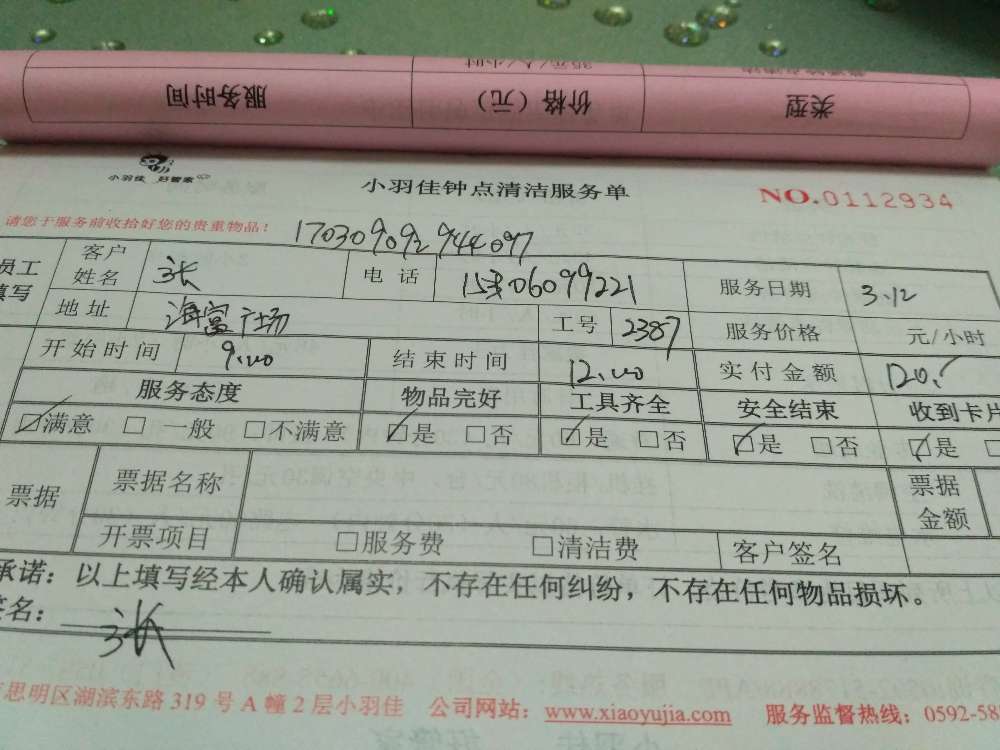 35元/人/小时
服务时间 价格（元） 类型
小羽佳 好管家
小羽佳钟点清洁服务单 NO.0112934
请您于服务前收拾好您的贵重物品！ 170309092944097
员工填写 客户姓名 张 电话 服务日期 3.12
地址 海富广场 工号 2387 服务价格 元/小时
开始时间 9:00 结束时间 12:00 实付金额 120.
服务态度 物品完好 工具齐全 安全结束 收到卡片
☑满意 □一般 □不满意 ☑是 □否 ☑是 □否 ☑是 □否 ☑是 □
票据 票据名称 票据金额
开票项目 □服务费 □清洁费 客户签名
承诺：以上填写经本人确认属实，不存在任何纠纷，不存在任何物品损坏。
签名：张
思明区湖滨东路 319 号 A 幢 2 层小羽佳 公司网站：www.xiaoyujia.com 服务监督热线：0592-58